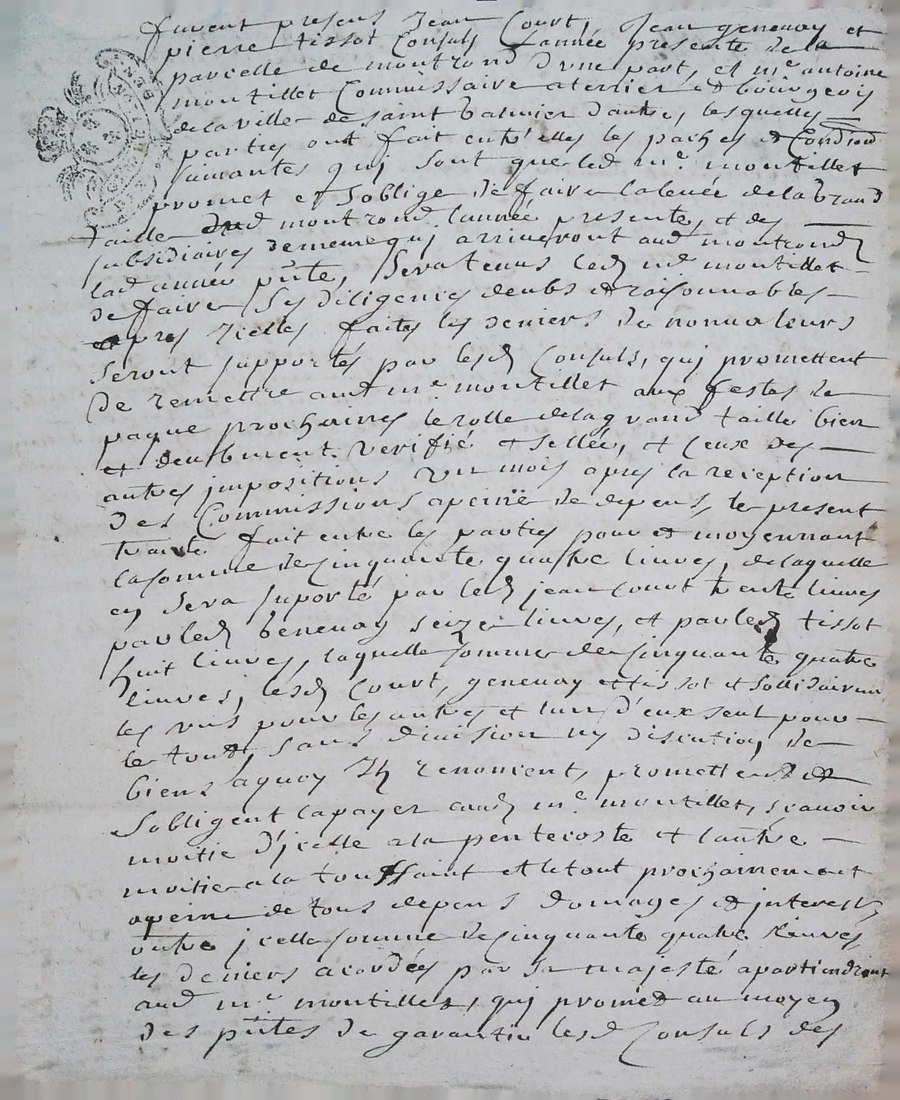 furent presens Jean Court, Jean genevay et
pierre tissot Consuls Lannée presente de la
parcelle de montrond d'une part, et me antoine
montillet Commissaire a terrier et bourgeois
de la ville de saint Galmier d'autre, lesquelles
parties ont fait entre elles les paches et Condiond
suivantes qui sont que led mr montillet
promet et soblige de faire la levée de la grand
taille dud montrond lannée presente, et des
subsidiaires de meme qui arriveront aud montrond
lad année pnte, sera tenus led me montillet
de faire ses diligences deubs et raisonnables
apres icelles faites les deniers de nonvaleurs
seront supportés par lesd Consuls, qui promettent
de remettre aud me montillet aux festes de
paque prochaines le rolle de la grand taille bien
et deubment verifié et sellée, et ceux des
autres impositions un mois apres la reception
des Commissions apeine de depens, le present
traité fait entre les parties pour et moyennant
la somme de cinquante quatre livres, de laquelle
en sera suporté par led jean Court trente livres
par led genevay seize livres, et par led tissot
huit livres, laquelle somme de cinquante quatre
livres, lesd Court, genevay et tissot et sollidairem
les uns pour les autres et lun d'eux seul pour
le tout, sans division ny discution de
biens a quoy ils renoncent, promettent et
sobligent la payer aud me montillet, scavoir
moitie d'icelle a la pentecoste et lautre
moitie a la toussaint et le tout prochainement
apeine de tous depens domages et interests
outre icelle somme de cinquante quatre livres
les deniers acordés par sa majesté apartiendront
aud me montillet, qui promet au moyen
des pntes de garantir lesd Consuls des